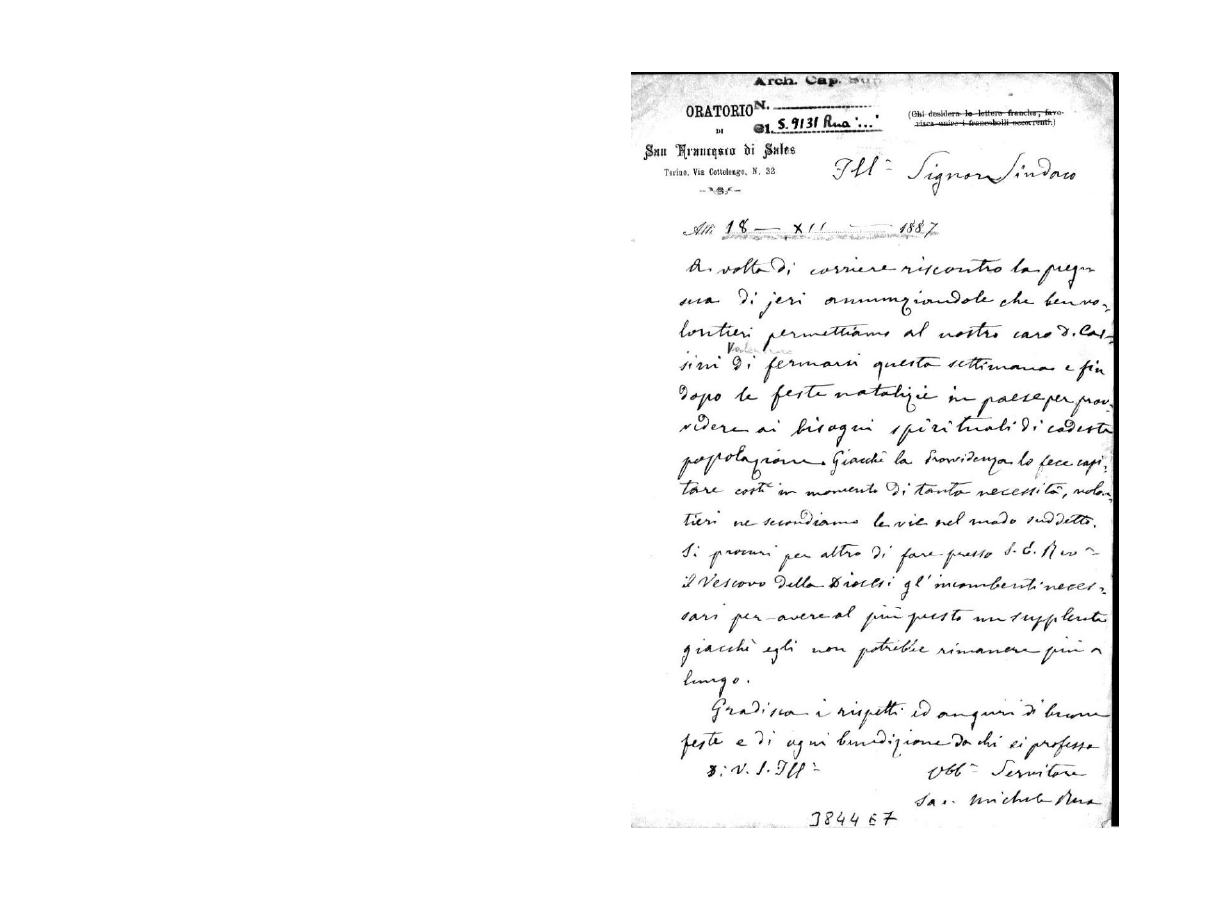 Arch. Cap. Sup
ORATORIO
N.
DI
S. 9131 Rua '...'
(Chi desidera le lettere franche, favo-
risca unire i francobolli occorrenti.)
San Francesco di Sales
Torino, Via Cottolengo, N. 32
Ill.mo Signor Sindaco
Alli 18 — XII — 1887
A volta di corriere riscontro la preg.
sua di jeri annunziandole che benvo-
lontieri permettiamo al nostro caro D. Cas-
sini di fermarsi questa settimana e fin
dopo le feste natalizie in paese per prov-
vedere ai bisogni spirituali di codesta
popolazione. Giacchè la Provvidenza lo fece capi-
tare costì in momento di tanta necessità, volen-
tieri ne secondiamo le vie nel modo suddetto.
Si procuri per altro di fare presso S. E. Rev.ma
il Vescovo della Diocesi gl'incombenti neces-
sari per avere al più presto un supplente
giacchè egli non potrebbe rimanere più a
lungo.
Gradisca i rispetti ed auguri di buone
feste e di ogni benedizione da chi si professa
di V. S. Ill.ma
Obb.mo Servitore
Sac. Michele Rua
3844 E7